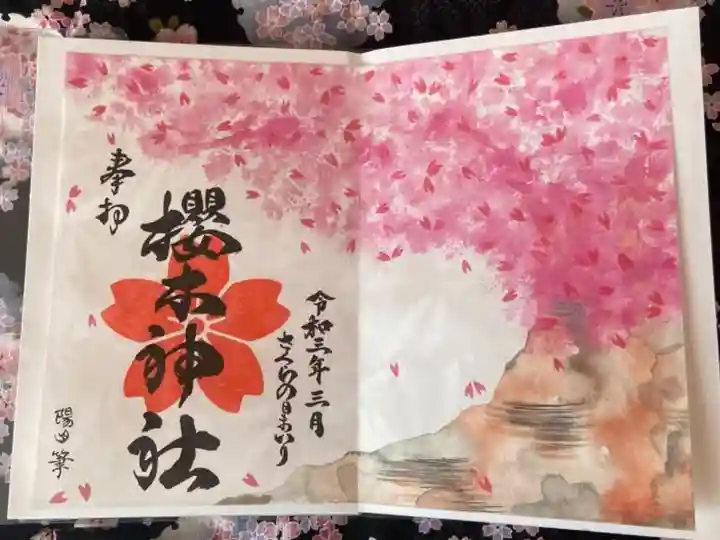 令和三年三月
さくらの日まいり
櫻木神社
奉拝
筆